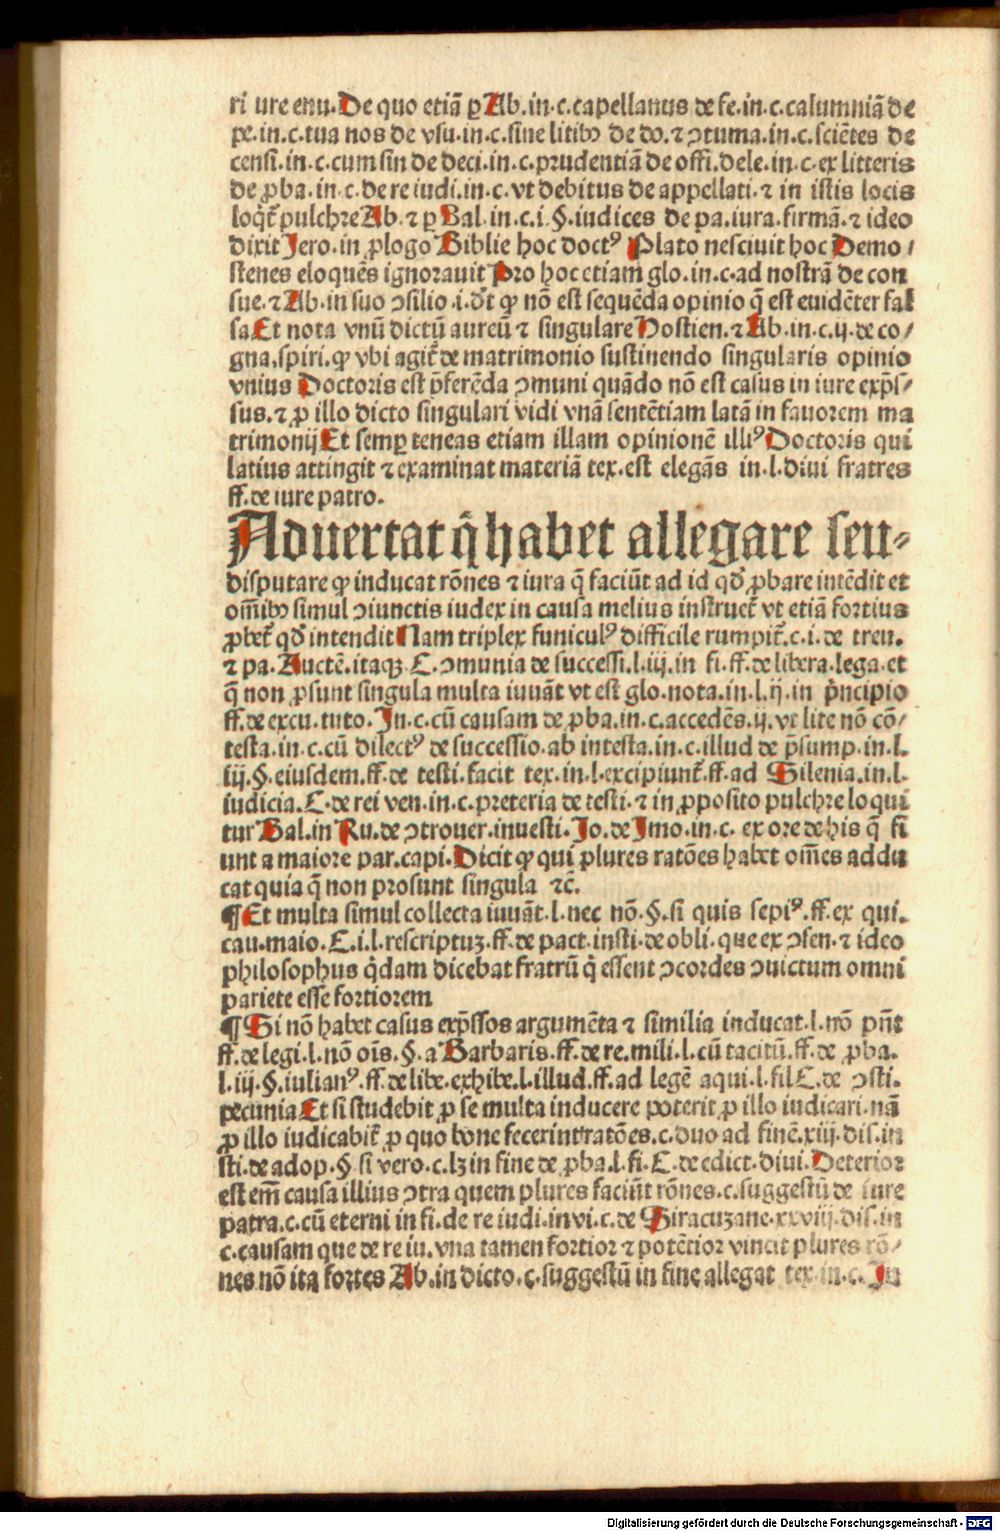 ri iure enu. De quo etiã ꝑ Ab. in. c. capellanus de fe. in. c. calumniã de
pe. in. c. tua nos de vsu. in. c. sine litibꝰ de do. ⁊ ↄtuma. in. c. sciẽtes de
censi. in. c. cum sin de deci. in. c. prudentiã de offi. dele. in. c. ex litteris
de ꝓba. in. c. de re iudi. in. c. vt debitus de appellati. ⁊ in istis locis
loqͥt̃ pulchre Ab. ⁊ ꝑ Bal. in. c. i. §. iudices de pa. iura. firmã. ⁊ ideo
dixit Jero. in ꝓlogo Biblie hoc doctꝰ Plato nesciuit hoc Demo/
stenes eloquẽs ignorauit Pro hoc etiam glo. in. c. ad nostrã de con
sue. ⁊ Ab. in suo ↄsilio. i. dt̃ ꝙ nõ est sequẽda opinio q̃ est euidẽter fal
sa Et nota vnũ dictũ aureũ ⁊ singulare Hostien. ⁊ Ab. in. c. ij. de co/
gna. spiri. ꝙ vbi agit̃ de matrimonio sustinendo singularis opinio
vnius Doctoris est p̃ferẽda ↄmuni quãdo nõ est casus in iure exp̃s/
sus. ⁊ ꝓ illo dicto singulari vidi vnã sentẽtiam latã in fauorem ma
trimonij Et semꝑ teneas etiam illam opinionẽ illiꝰ Doctoris qui
latius attingit ⁊ examinat materiã tex. est elegãs in. l. diui fratres
ff. de iure patro.
Aduertat qͥ habet allegare seu-
disputare ꝙ inducat rõnes ⁊ iura q̃ faciũt ad id qđ ꝓbare intẽdit et
om̃ibꝰ simul ↄiunctis iudex in causa melius instruet̃ vt etiã fortius
ꝓbet̃ qđ intendit Nam triplex funiculꝰ difficile rumpit̃. c. i. de treu.
⁊ pa. Auctẽ. itaqꝫ C. ↄmunia de successi. l. iij. in fi. ff. de libera. lega. et
q̃ non ꝓsunt singula multa iuuãt vt est glo. nota. in. l. ij. in pͥncipio
ff. de excu. tuto. In. c. cũ causam de ꝓba. in. c. accedẽs. ij. vt lite nõ cõ/
testa. in. c. cũ dilectꝰ de successio. ab intesta. in. c. illud de p̃sump. in. l.
iij. §. eiusdem. ff. de testi. facit tex. in. l. excipiunt̃. ff. ad Silenia. in. l.
iudicia. C. de rei ven. in. c. preteria de testi. ⁊ in ꝓposito pulchre loqui
tur Bal. in Ru. de ↄtrouer. inuesti. Jo. de Imo. in. c. ex ore de his q̃ fi
unt a maiore par. capi. Dicit ꝙ qui plures ratões habet om̃es addu
cat quia q̃ non prosunt singula ⁊c̃.
¶ Et multa simul collecta iuuãt. l. nec nõ. §. si quis sepiꝰ. ff. ex qui.
cau. maio. C. i. l. rescriptuꝫ. ff. de pact. insti. de obli. que ex ↄsen. ⁊ ideo
philosophus qͥdam dicebat fratrũ qͥ essent ↄcordes ↄuictum omni
pariete esse fortiorem
¶ Si nõ habet casus exp̃ssos argumẽta ⁊ similia inducat. l. nõ pñt
ff. de legi. l. nõ oĩs. §. a Barbaris. ff. de re. mili. l. cũ tacitũ. ff. de ꝓba.
l. iij. §. iulianꝰ. ff. de libe. exhibe. l. illud. ff. ad legẽ aqui. l. fil C. de ↄsti.
pecunia Et si studebit ꝓ se multa inducere poterit ꝓ illo iudicari. nã
ꝓ illo iudicabit̃ ꝓ quo bone fecerint ratões. c. duo ad finẽ. xiij. dis. in
sti. de adop. § si vero. c. lꝫ in fine de ꝓba. l. fi. C. de edict. diui. Deterior
est em̃ causa illius ↄtra quem plures faciũt rõnes. c. suggestũ de iure
patra. c. cũ eterni in fi. de re iudi. in vi. c. de Siracuzane. xxviij. dis. in
c. causam que de re iu. vna tamen fortior ⁊ potẽtior vincit plures rõ/
nes nõ ita fortes Ab. in dicto. c. suggestũ in fine allegat tex. in. c. In
Digitalisierung gefördert durch die Deutsche Forschungsgemeinschaft - DFG